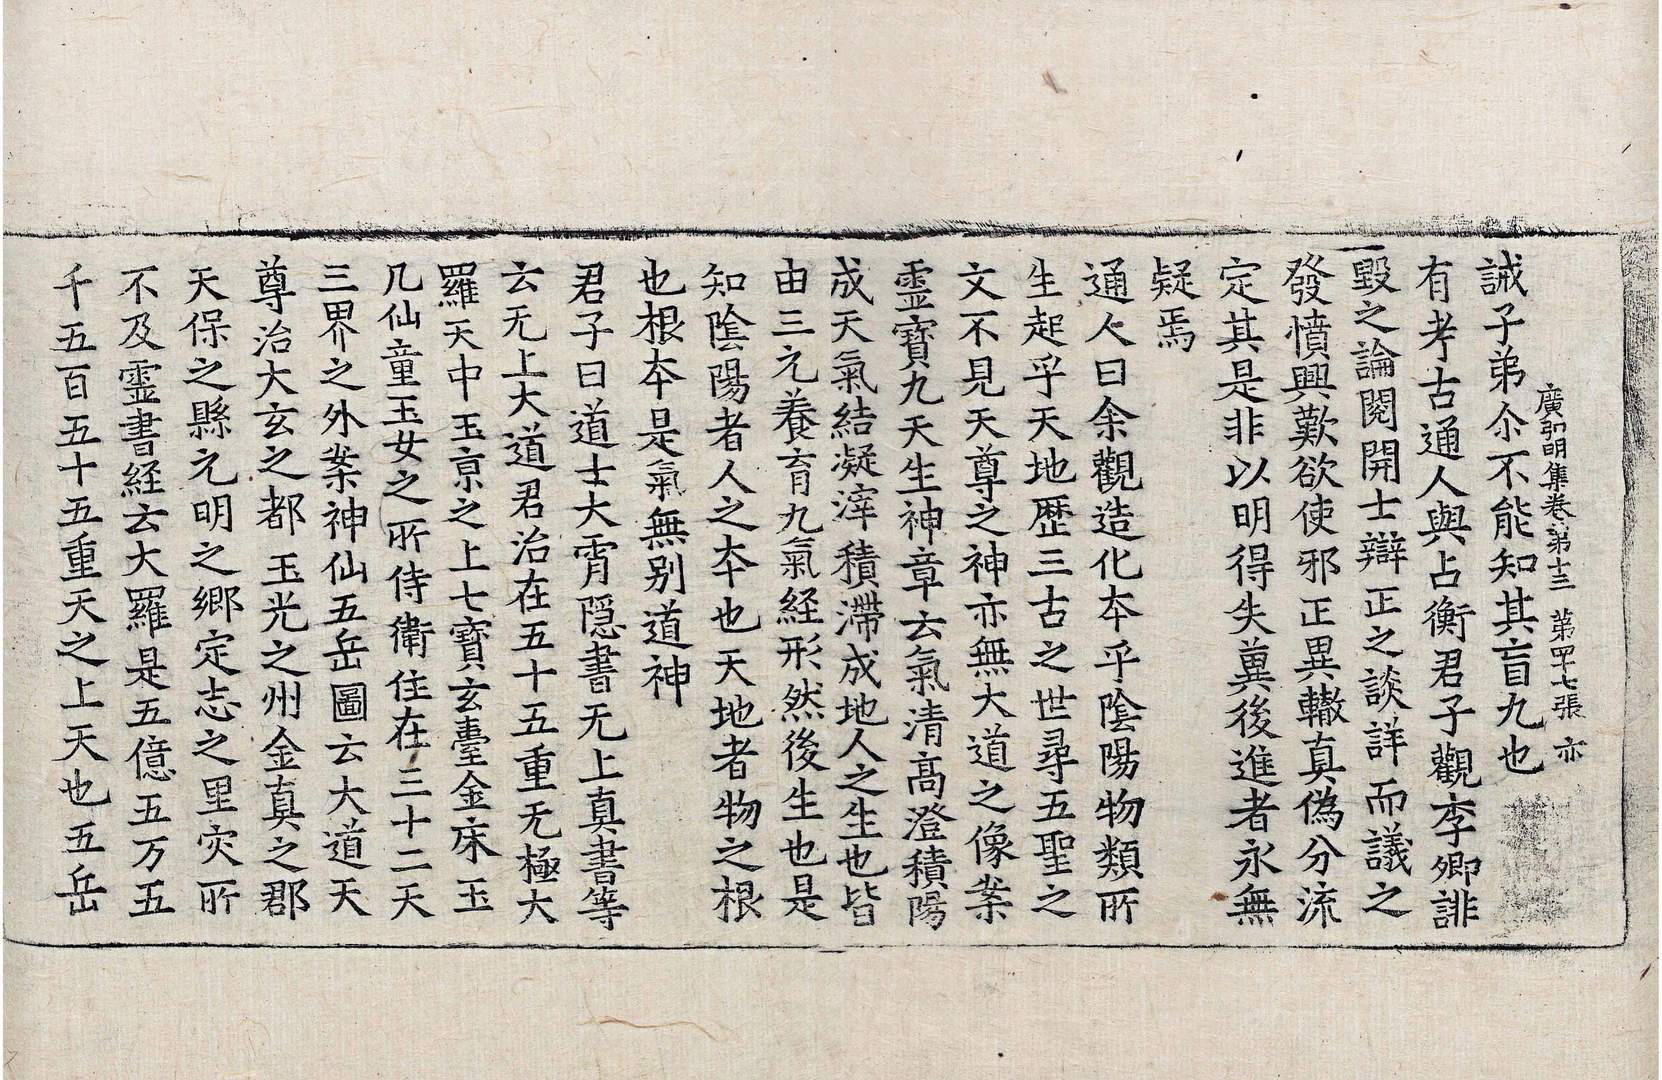 誡子弟尒不能知其盲九也
廣弘明集卷第十三 第四十七張 亦
有考古通人與占衡君子觀李卿誹
毀之論閱開士辯正之談詳而議之
發憤興歎欲使邪正異轍真偽分流
定其是非以明得失冀後進者永無
疑焉
通人曰余觀造化本乎陰陽物類所
生起乎天地歷三古之世尋五聖之
文不見天尊之神亦無大道之像案
靈寶九天生神章云氣清高澄積陽
成天氣結凝滓積滯成地人之生也皆
由三元養育九氣経形然後生也是
知陰陽者人之本也天地者物之根
也根本是氣無別道神
君子曰道士大霄隱書无上真書等
云无上大道君治在五十五重无極大
羅天中玉京之上七寶玄臺金床玉
几仙童玉女之所侍衛住在三十二天
三界之外案神仙五岳圖云大道天
尊治大玄之都玉光之州金真之郡
天保之縣元明之鄉定志之里灾所
不及靈書経云大羅是五億五万五
千五百五十五重天之上天也五岳